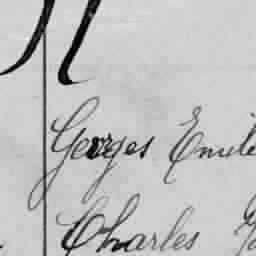 Georges Emile
Charles